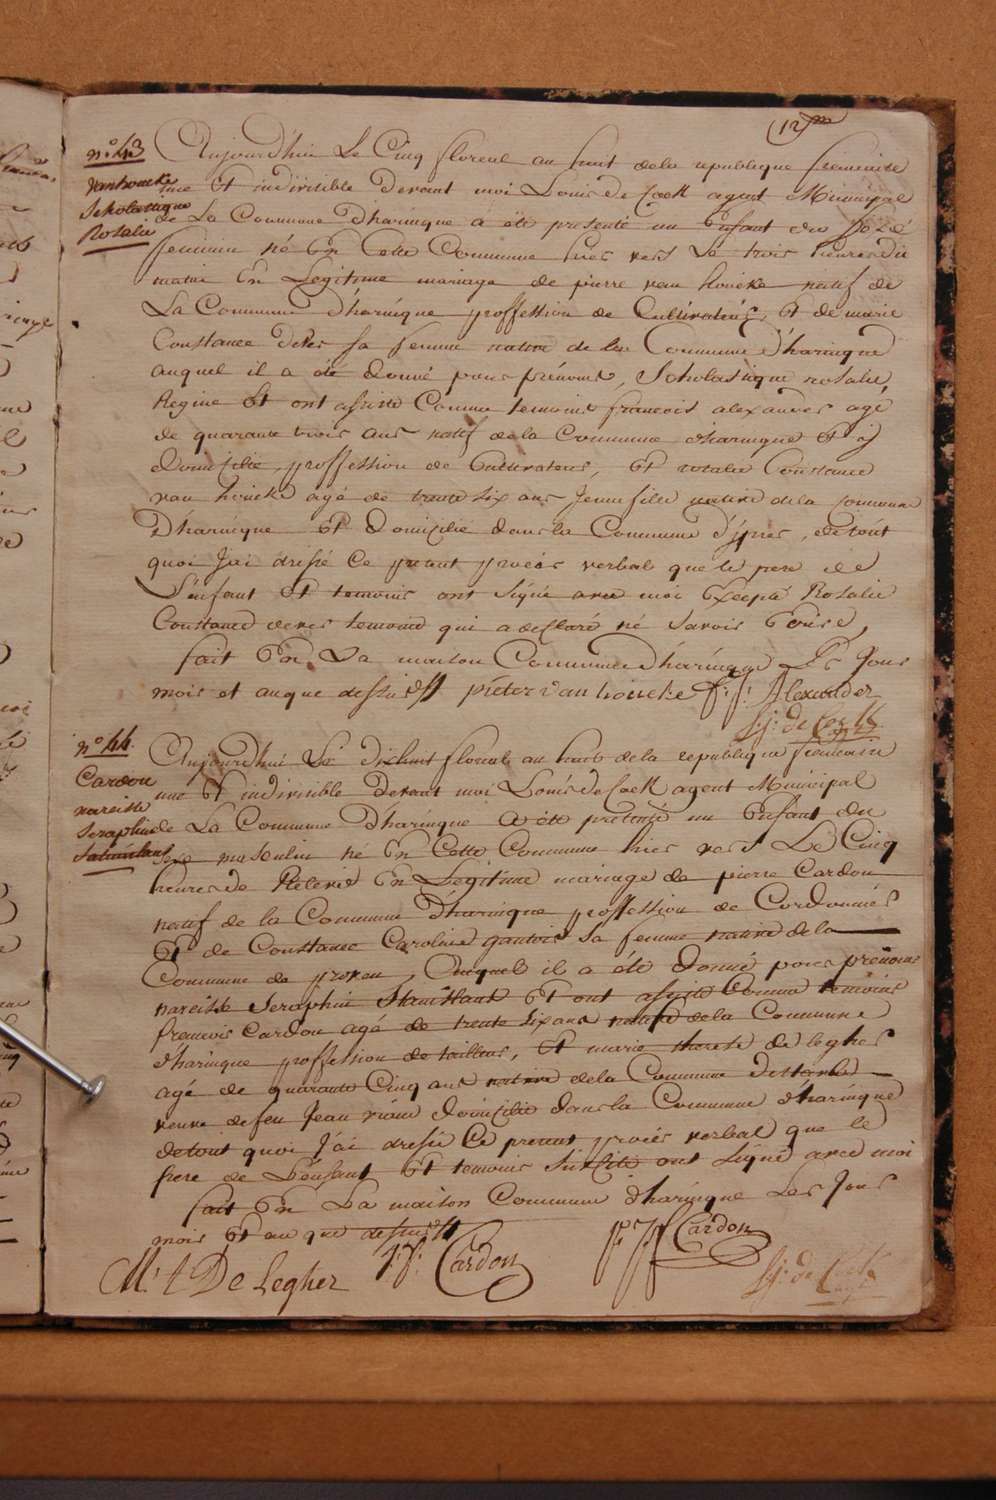 (12)
n° 43
Vanhoucke
Scholastique
Rosalie
Aujourd'hui Le Cinq floreal an huit de la republique francaise
une Et indivisible Devant moi Louis De Cock agent Municipal
de La Commune D'haringue a été presenté un Enfant du Sexe
feminin né En Cette Commune hier vers Le trois heures Du
matin En Legitime mariage de pierre van houcke natif de
La Commune D'haringue proffession de Cultivateur, Et de marie
Constance Deves sa femme native de la Commune D'haringue
auquel il a été Donné pour prénoms, Scholastique rosalie
Regine Et ont assisté Comme temoins francois alexander agé
de quarante trois ans natif de la Commune d'haringue Et y
domicilié, proffession de Cultivateur, Et rosalie Constance
van houcke agé de trente six ans Jeune fille native de la commune
D'haringue Et Domicilié dans la Commune D'ypres, de tout
quoi J'ai dressé Ce present procés verbal que le pere de
L'enfant Et temoins ont Signé avec moi Excepté Rosalie
Constance deves temoine qui a declaré né Savoir Ecrire,
fait En La maison Commune D'haringue Les Jour
mois et an que dessus pieter van houcke F: J: Alexander
L:j: de Cock
n° 44.
Cardon
narcisse
Seraphin
Stanislaus
Aujourd'hui Le Dixhuit floreal an huit de la republique francaise
une Et indivisible Devant moi Louis De Cock agent Municipal
de La Commune D'haringue a été presenté un Enfant du
Sexe masculin né En Cette Commune hier vers Le Cinq
heures de Relevée En Legitime mariage de pierre Cardon
natif de la Commune D'haringue proffession de Cordonnier
Et de Constance Caroline gantois sa femme native de la
Commune de proven, Auquel il a été Donné pour prénoms
narcisse Seraphin Stanislaus Et ont assisté Comme temoins
francois Cardon agé de trente six ans natif de la Commune
d'haringue proffession de tailleur, Et marie therese de legher
agé de quarante Cinq ans native de la Commune
veuve de feu Jean Domicilié dans la Commune d'haringue
de tout quoi J'ai dressé Ce present procés verbal que le
pere de L'enfant Et temoins Suscité ont Signé avec moi
fait En La maison Commune d'haringue Les Jour
mois Et an que dessus
M: t De Legher F: J: Cardon P: J: Cardon
L:j: de Cock